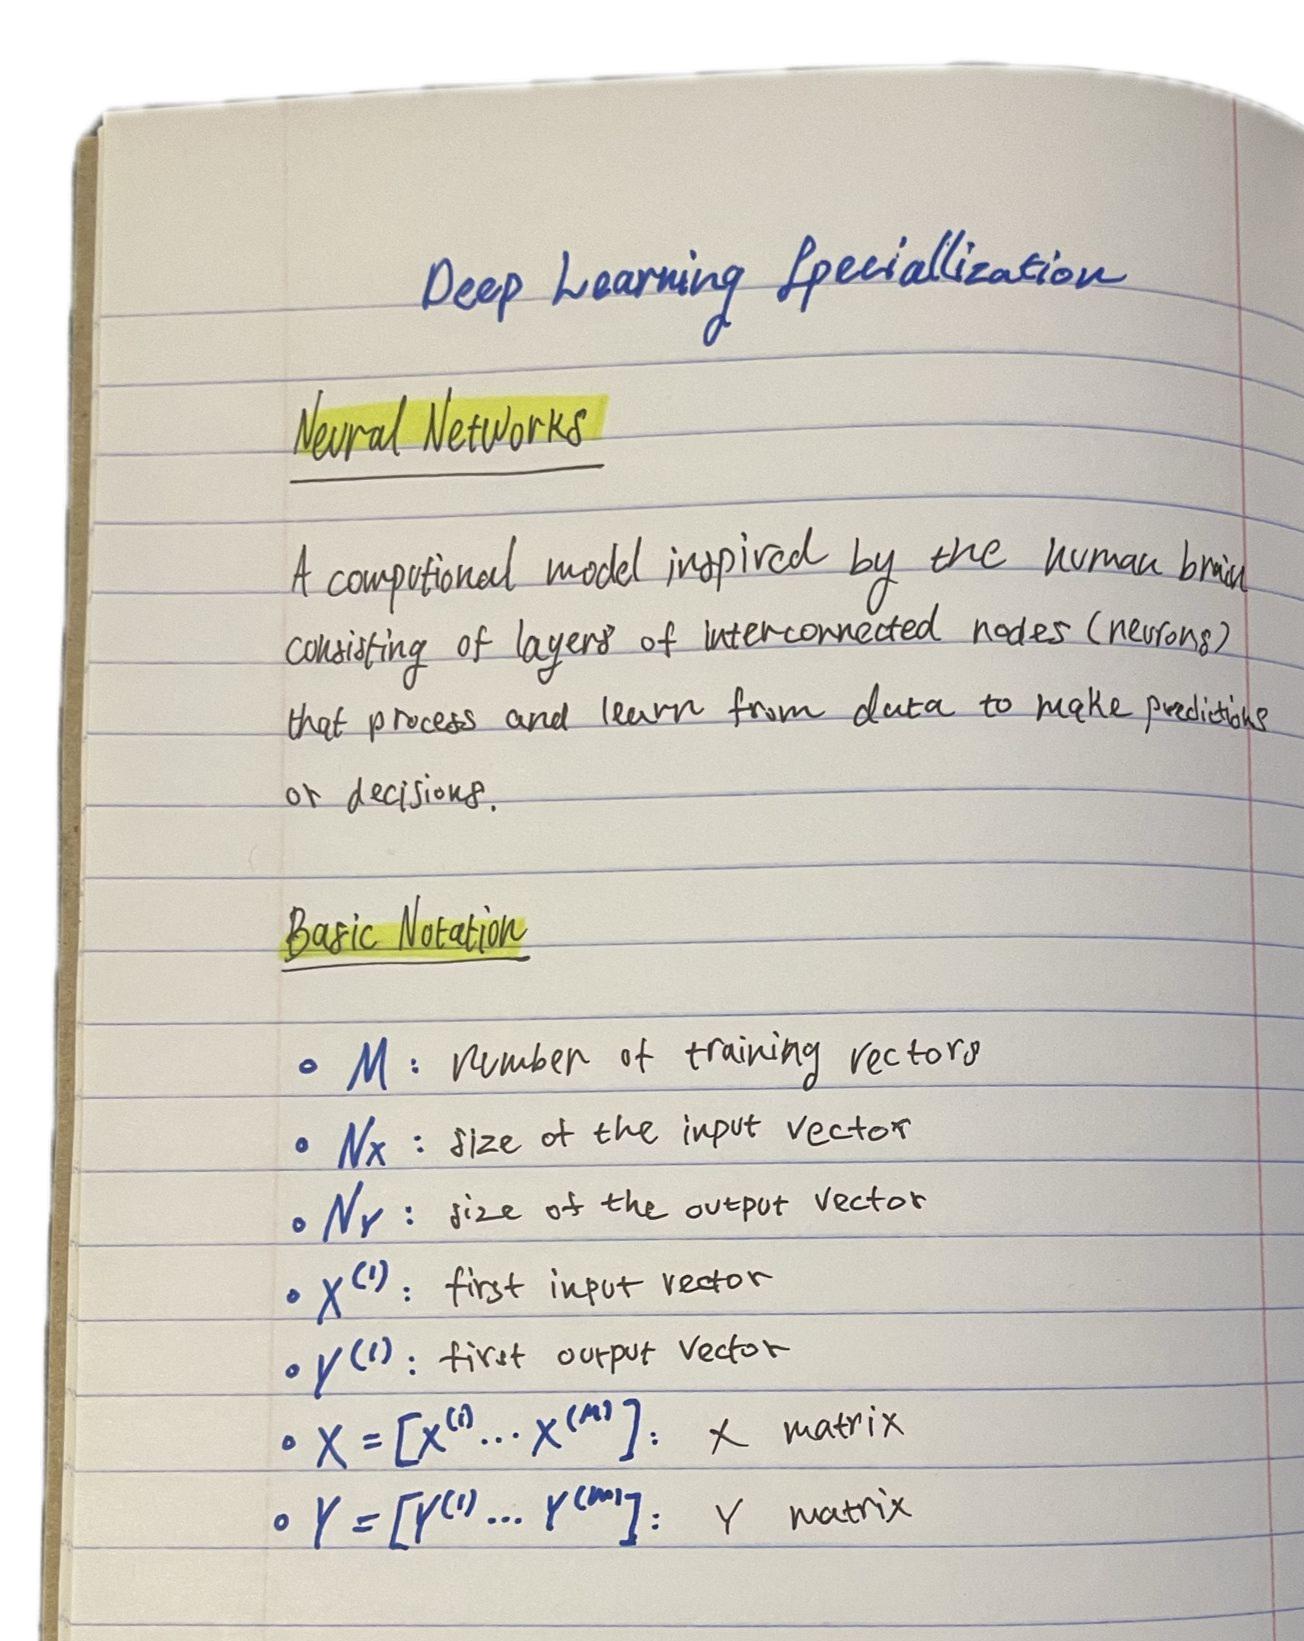 Deep Learning Speciallization
Neural Networks
A computional model inspired by the human brain
consisting of layers of interconnected nodes (neurons)
that process and learn from data to make predictions
or decisions.
Basic Notation
• M : number of training vectors
• Nx : size of the input vector
• Ny : size of the output vector
• X⁽¹⁾ : first input vector
• Y⁽¹⁾ : first output vector
• X = [X⁽¹⁾... X⁽ᴹ⁾] : X matrix
• Y = [Y⁽¹⁾... Y⁽ᵐ⁾] : Y matrix